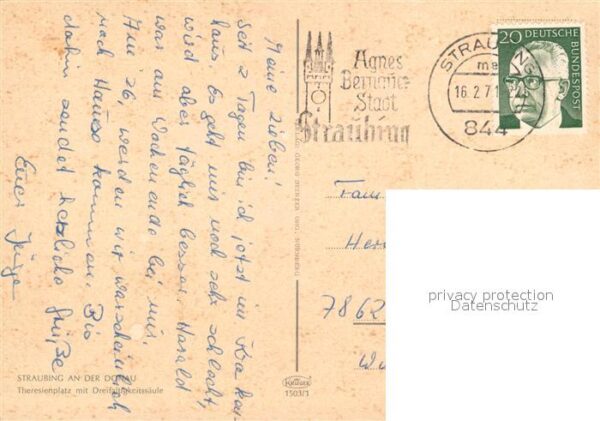 Meine Lieben!
Seit 2 Tagen bin ich jetzt im Kra kan
haus. Es geht mir noch sehr schlecht,
wird aber täglich besser. Harald
war am Wochenende bei mir.
Am 26. werden wir warscheinlich
nach Hause kommen. Bis
dahin sendet herzliche Grüße
Euer
STRAUBING AN DER DONAU
Theresienplatz mit Dreifaltigkeitssäule
VERLAG
KRÜGER
1503/1
Agnes
Bernauer
Stadt
Straubing
STRAUBING
16.2.71
844
20 DEUTSCHE
BUNDESPOST
Fam
Her
7862
privacy protection
Datenschutz